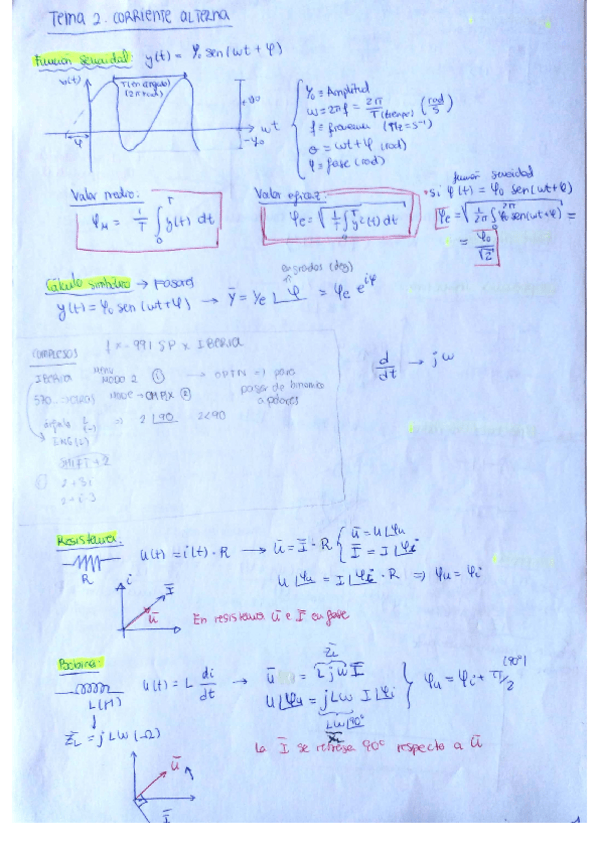 Tema 2. CORRIENTE ALTERNA
Función senoidal: y(t) = Y₀ sen(wt + φ)
T (en ángulo)
(2π rad)
wt
φ
-Y₀
Y₀ ≡ Amplitud
w = 2πf = 2π/T(tiempo) (rad/s)
f = frecuencia (Hz = s⁻¹)
θ = wt + φ (rad)
φ = fase (rad)
Valor medio:
Y_M = 1/T ∫₀ᵀ y(t) dt
Valor eficaz:
Ye = √(1/T ∫₀ᵀ y²(t) dt)
función senoidal
si y(t) = Y₀ sen(wt + φ)
= Y₀/√2
Cálculo simbólico → Fasores
en grados (deg)
y(t) = Y₀ sen(wt + φ) → Ȳ = Ye ∠φ = Ye e^{iφ}
COMPLEJOS fx-991 SP X IBERIA
IBERIA MENU MODO 2 ① → OPTN => para
pasar de binomica
a polares
=> 2∠90 2<90
ENG (i)
SHIFT + 2
d/dt → jw
Resistencia:
R
u(t) = i(t) · R → ū = Ī · R { ū = U∠φu
Ī = I∠φi
U∠φu = I∠φi · R => φu = φi
i
Ī
ū
En resistencia ū e Ī en fase
Bobina:
L(H)
u(t) = L di/dt → ū = Ljw Ī
Z̄L
U∠φu = jLw I∠φi
Lw∠90°
φu = φi + π/2 (90°)
Z̄L = jLw (Ω)
La Ī se retrasa 90° respecto a ū
ū
Ī